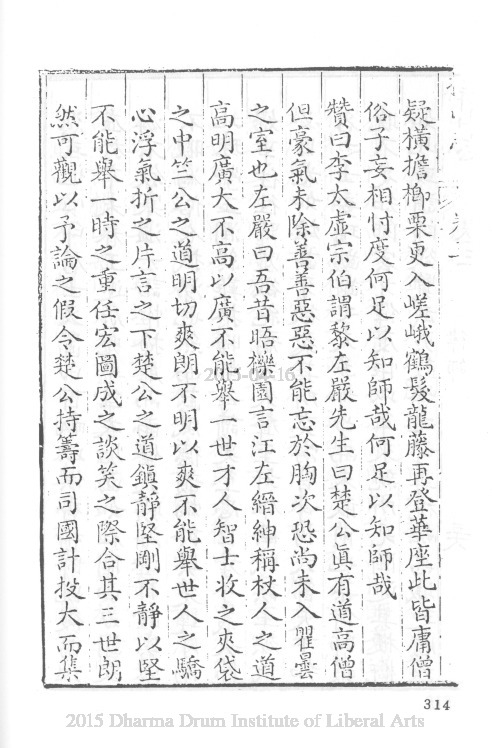 疑橫擔楖栗更入嵯峨鶴髮龍藤再登華座此皆庸僧
俗子妄相忖度何足以知師哉何足以知師哉
贊曰李太虛宗伯謂黎左嚴先生曰楚公眞有道高僧
但豪氣未除善善惡惡不能忘於胸次恐尚未入瞿曇
之室也左嚴曰吾昔晤櫟園言江左縉紳稱杖人之道
高明廣大不高以廣不能舉一世才人智士收之夾袋
之中竺公之道明切爽朗不明以爽不能舉世人之驕
心浮氣折之片言之下楚公之道鎭靜堅剛不靜以堅
不能舉一時之重任宏圖成之談笑之際合其三世朗
然可觀以予論之假令楚公持籌而司國計投大而集
314
2015 Dharma Drum Institute of Liberal Arts